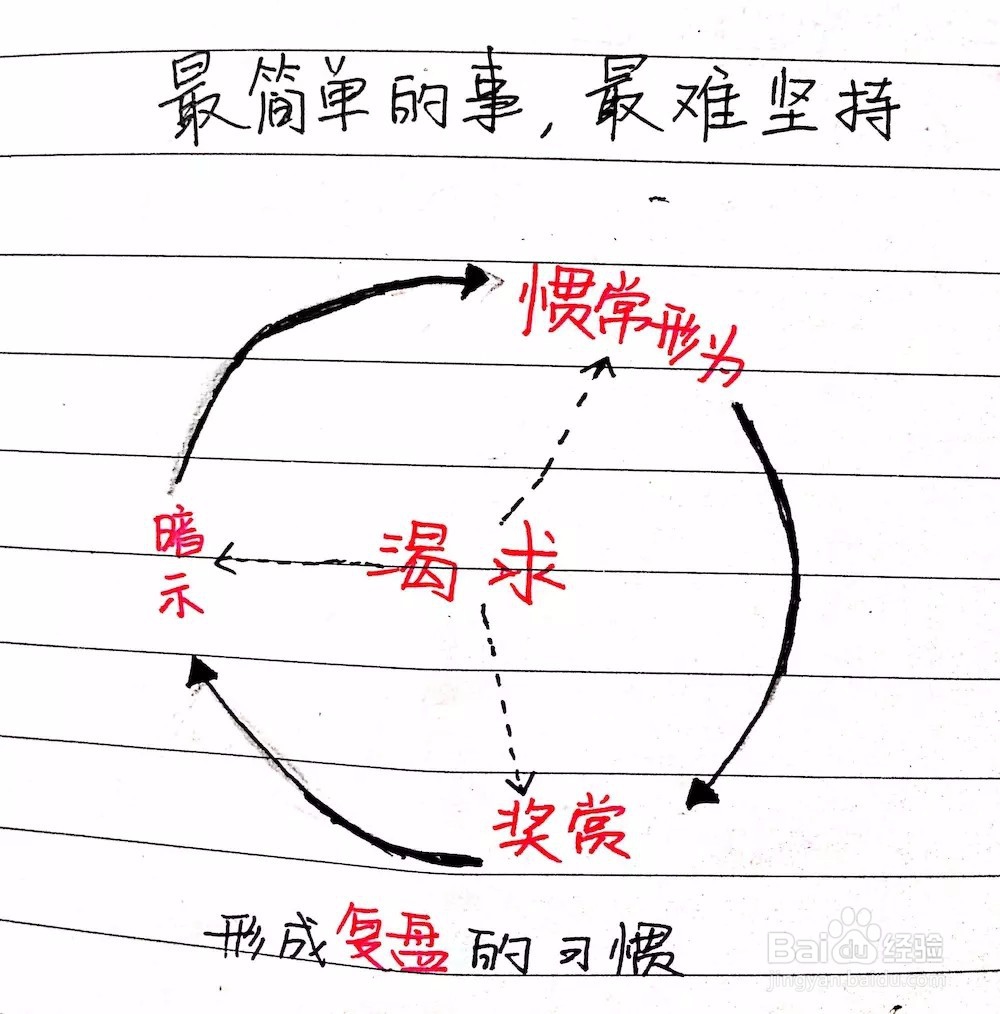 最简单的事,最难坚持
惯常形为
暗示
渴求
奖赏
形成复盘的习惯
Baidu经验
jingyan.baidu.com